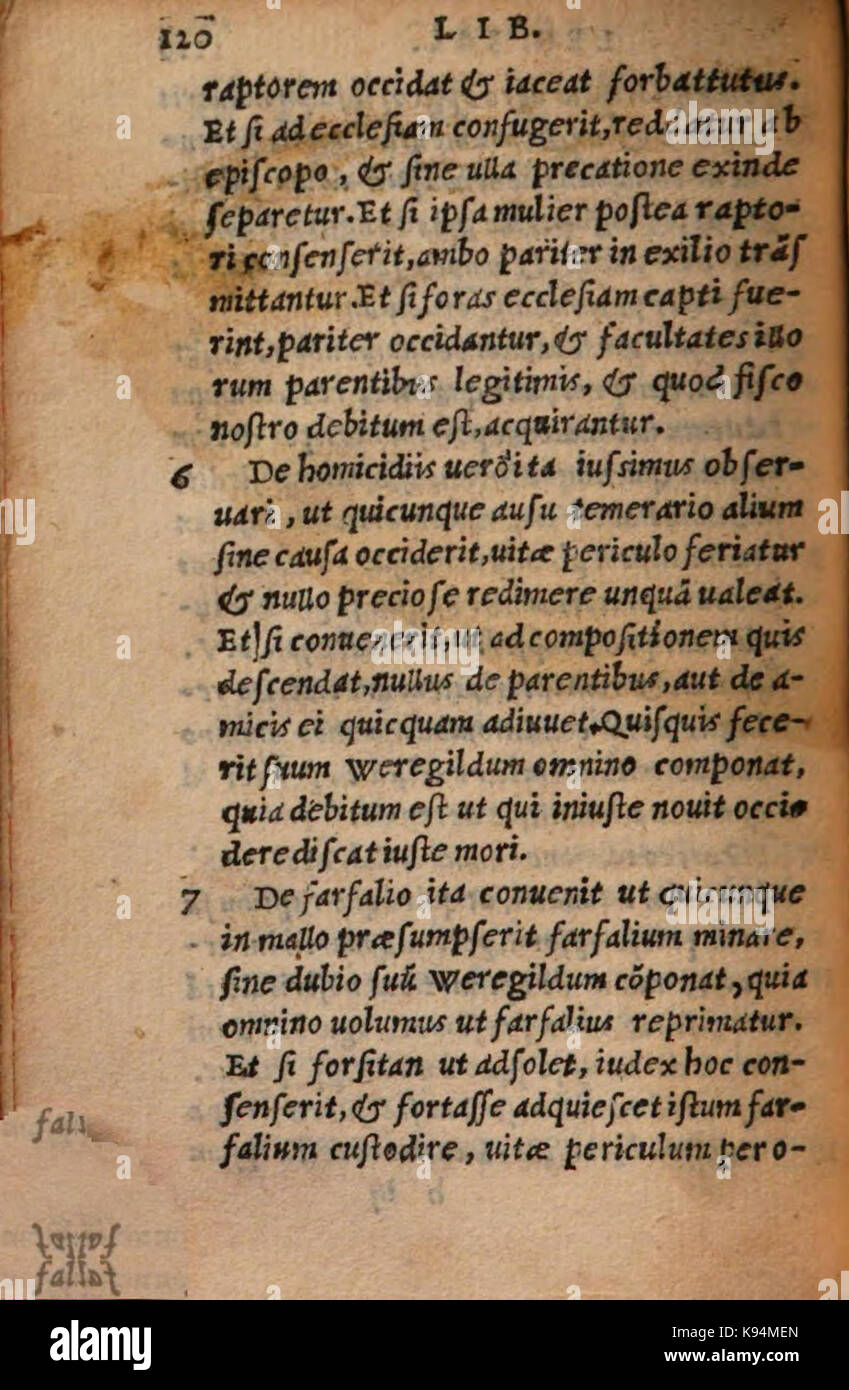 120 LIB.
raptorem occidat & iaceat forbattutus.
Et ſi ad eccleſiam confugerit, reddatur ab
epiſcopo, & ſine ulla precatione exinde
ſeparetur. Et ſi ipſa mulier poſtea rapto-
ri conſenſerit, ambo pariter in exilio trãſ
mittantur. Et ſi foras eccleſiam capti fue-
rint, pariter occidantur, & facultates illo
rum parentibus legitimis, & quod fiſco
noſtro debitum eſt, acquirantur.
6 De homicidiis uerò ita iuſsimus obſer-
uari, ut quicunque auſu temerario alium
ſine cauſa occiderit, uitæ periculo feriatur
& nullo precio ſe redimere unquã ualeat.
Et] ſi conuenerit, ut ad compoſitionem quis
deſcendat, nullus de parentibus, aut de a-
micis ei quicquam adiuuet. Quiſquis fece-
rit ſuum weregildum omnino componat,
quia debitum eſt ut qui iniuſte nouit occi-
dere diſcat iuſte mori.
7 De farfalio ita conuenit ut quicunque
in mallo præſumpſerit farfalium minare,
ſine dubio ſuũ weregildum cõponat, quia
omnino uolumus ut farfalius reprimatur.
Et ſi forſitan ut adſolet, iudex hoc con-
ſenſerit, & fortaſſe adquieſcet iſtum far-
falium cuſtodire, uitæ periculum per o-
alamy
a
alamy
K94MEN
www.alamy.com